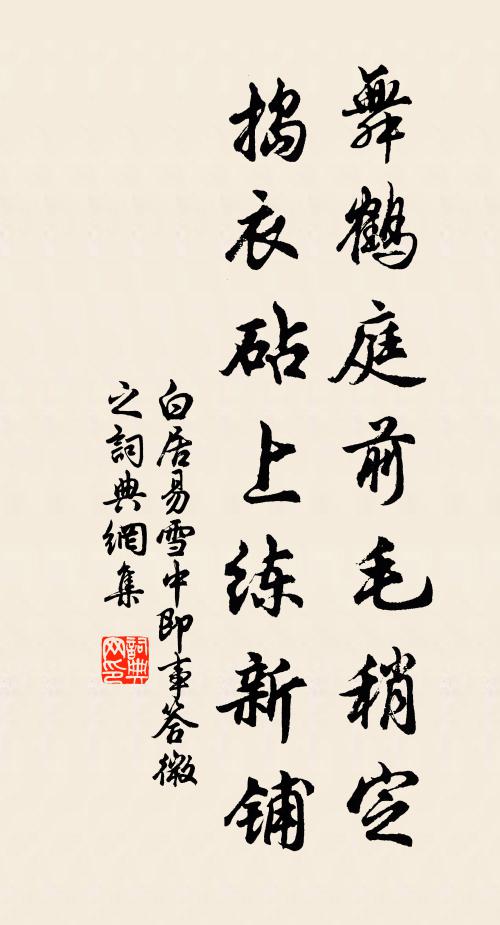 舞鶴庭前毛稍定
搗衣砧上练新铺
白居易雪中即事答微
之詞典網集
詞典
网印